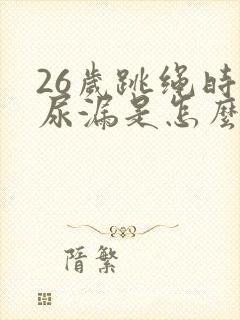 26歲跳绳時
尿漏是怎麼
隋繁